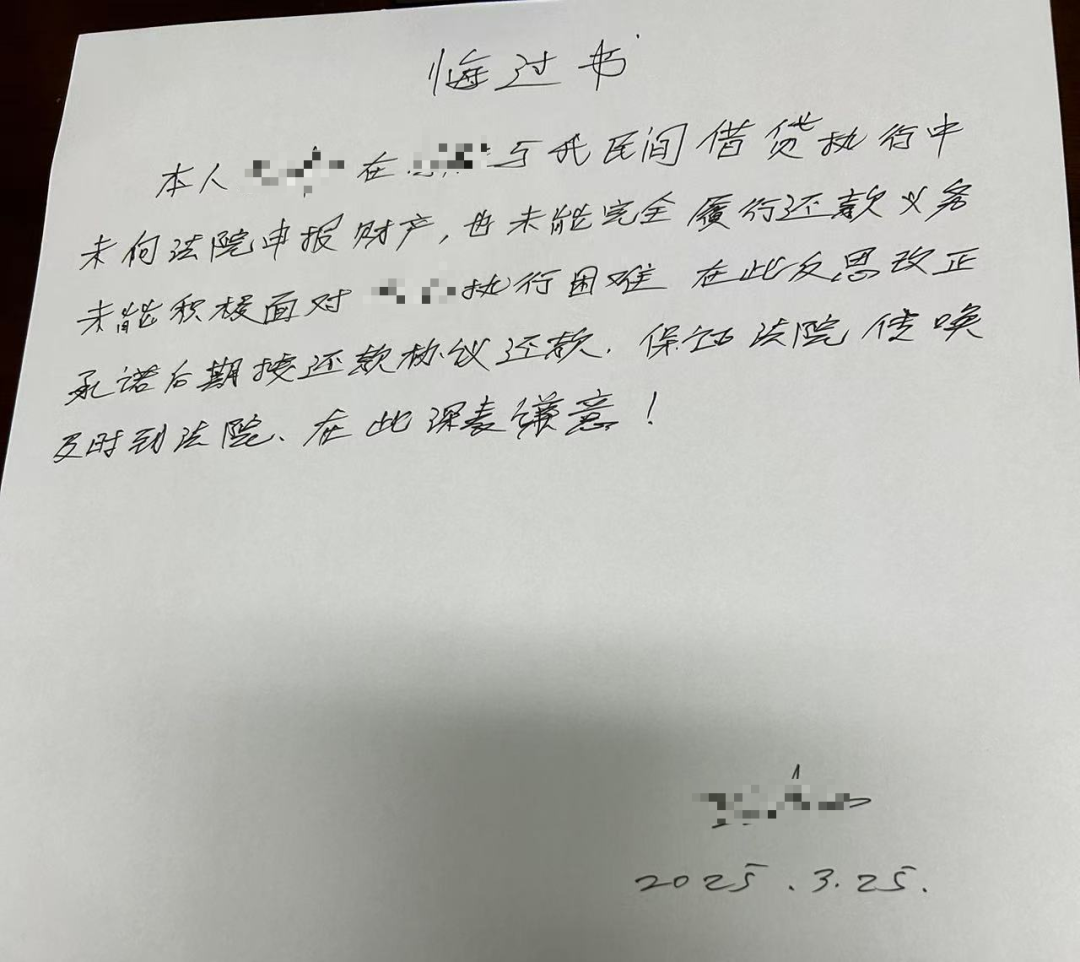 悔过书
本人 在 与我民间借贷执行中
未向法院申报财产,也未能完全履行还款义务
未能积极面对 执行困难 在此反思改正
承诺后期按还款协议还款.保证法院传唤
及时到法院、在此深表谦意!
2025.3.25.